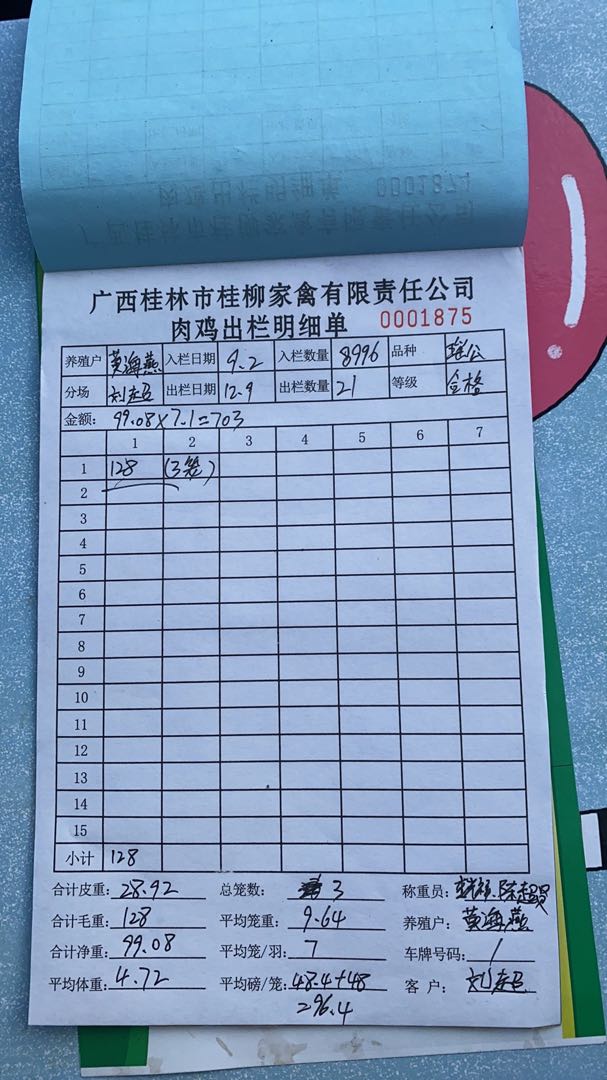 广西桂林市桂柳家禽有限责任公司
肉鸡出栏明细单 0001875
养殖户 黄海燕 入栏日期 9.2 入栏数量 8996 品种 瑶公
分场 刘超 出栏日期 12.9 出栏数量 21 等级 合格
金额: 99.08×7.1=703
1 2 3 4 5 6 7
1 128 (3笼)
2
3
4
5
6
7
8
9
10
11
12
13
14
15
小计 128
合计皮重: 28.92 总笼数: 3 称重员:
合计毛重: 128 平均笼重: 9.64 养殖户: 黄海燕
合计净重: 99.08 平均笼/羽: 7 车牌号码: /
平均体重: 4.72 平均磅/笼: 48.4+48 客 户: 刘超
=96.4